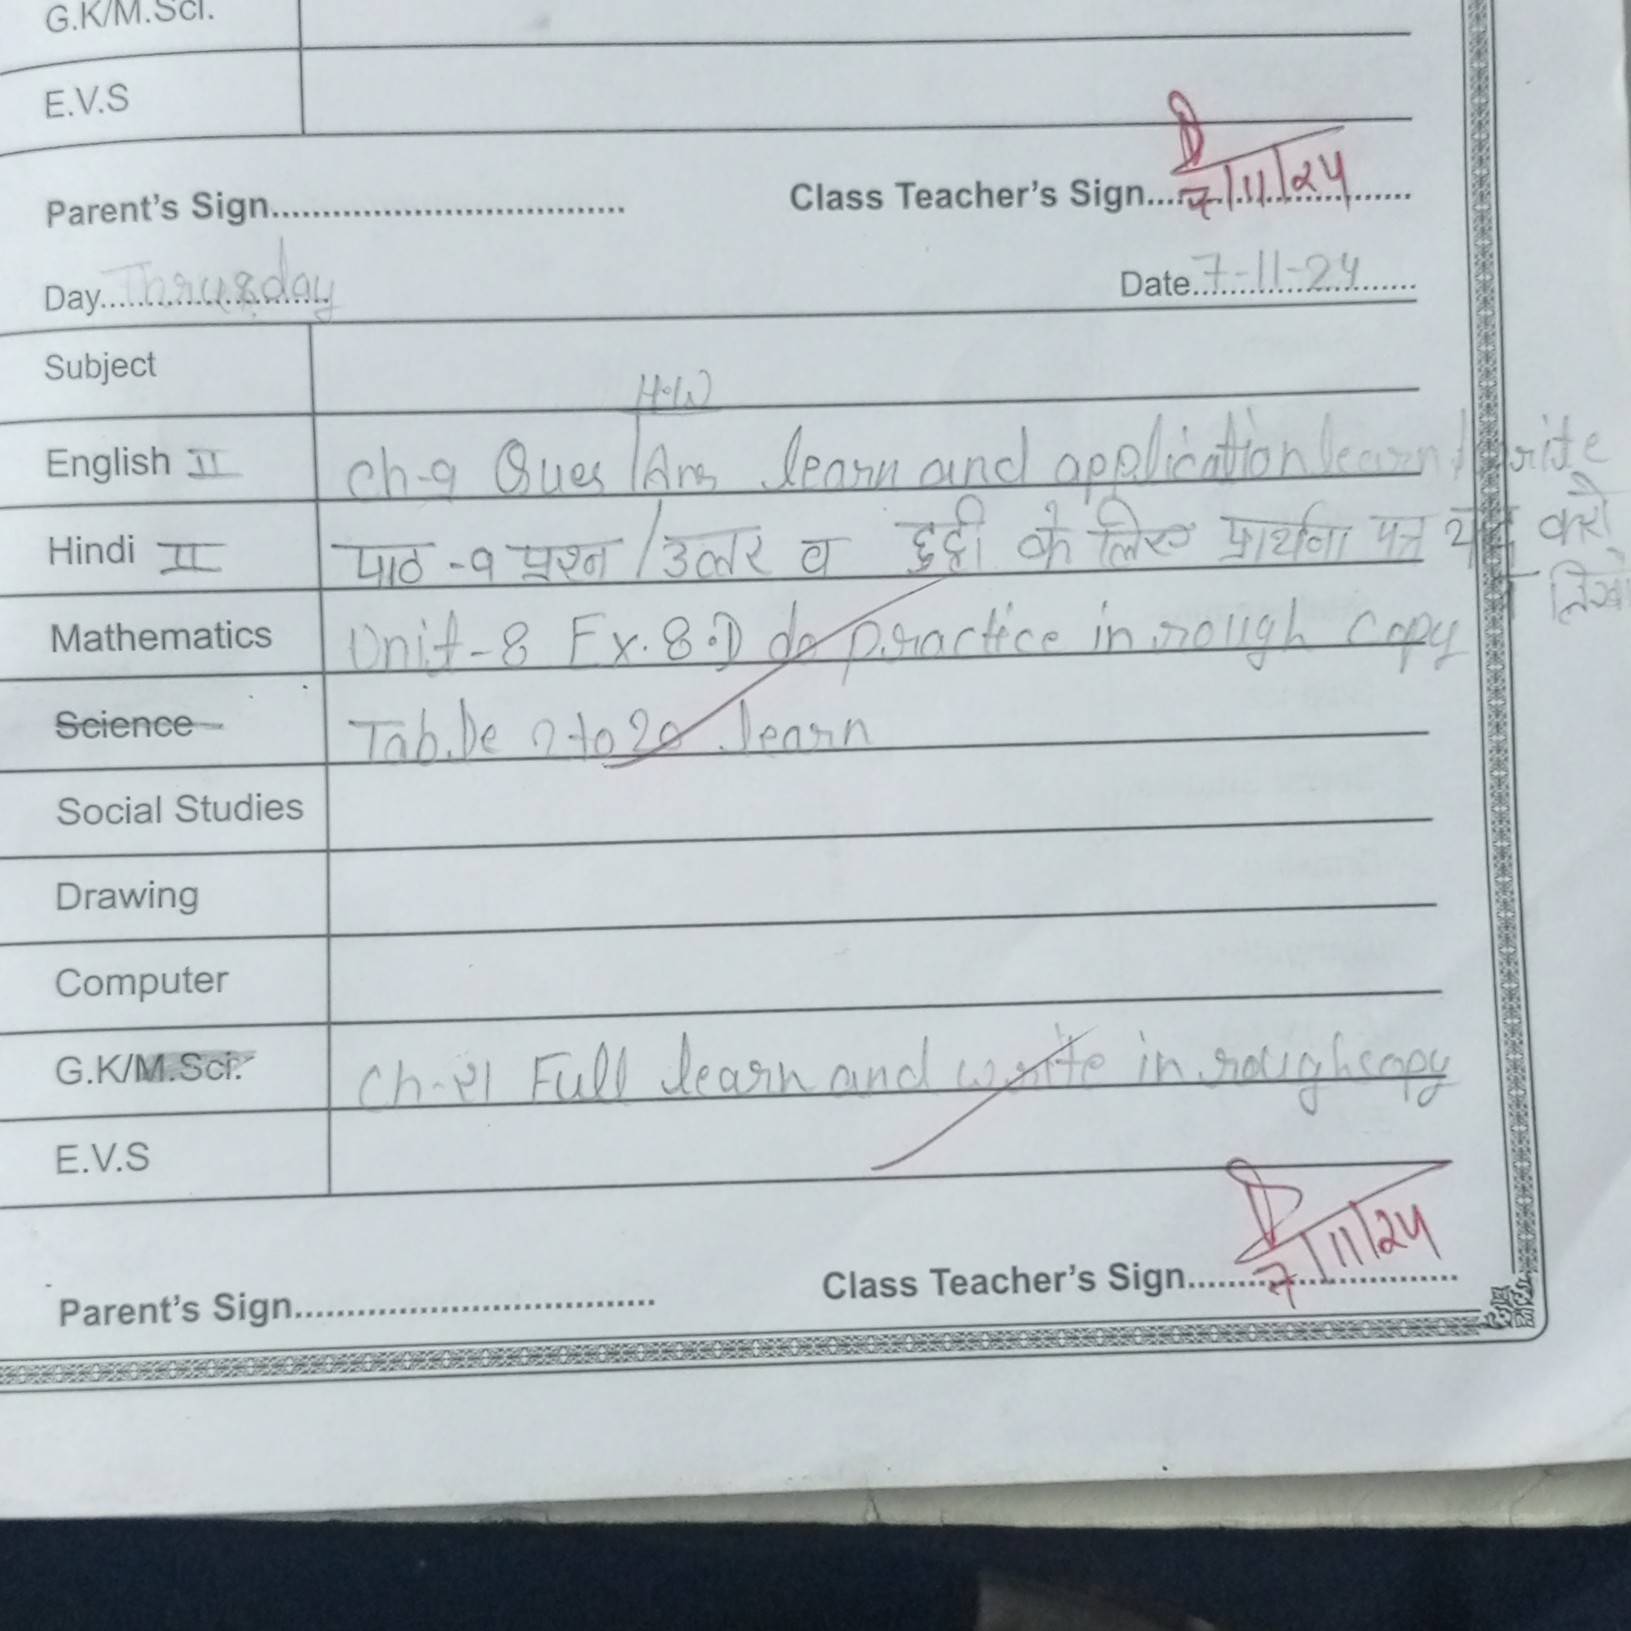 G.K/M.Sci.
E.V.S
Parent's Sign.................................... Class Teacher's Sign.... 7/11/24
Day....Thrusday Date..7-11-24
Subject
H.W
English II Ch-9 Ques/Ans learn and application learn write
Hindi II पाठ -9 प्रश्न/उत्तर व छुट्टी के लिए प्रार्थना पत्र याद करो
लिखो
Mathematics Unit-8 Ex.8.D do practice in rough copy
Science Table 2 to 20 learn
Social Studies
Drawing
Computer
G.K/M.Sci. Ch-21 Full learn and write in rough copy
E.V.S
Parent's Sign.................................... Class Teacher's Sign....... 7/11/24